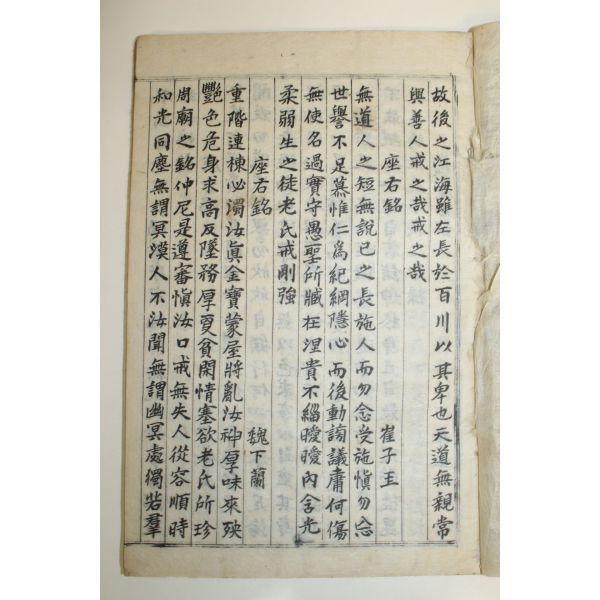 故後之江海雖左長於百川以其卑也天道無親常
與善人戒之哉戒之哉
座右銘 崔子玉
無道人之短無說已之長施人而勿念受施愼勿忘
世譽不足慕惟仁爲紀綱隱心而後動謗議庸何傷
無使名過實守愚聖所臧在涅貴不緇曖曖內含光
柔弱生之徒老氏戒剛強
座右銘 魏下蘭
重階連棟必濁汝眞金寶蒙屋將亂汝神厚味來殃
艷色危身求高反墜務厚更貧閑情塞欲老氏所珍
周廟之銘仲尼是遵審愼汝口戒無失人從容順時
和光同塵無謂冥漠人不汝聞無謂幽冥處獨若羣